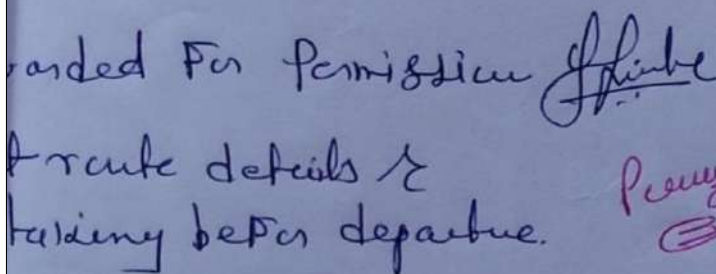 arded For Permission
t route details &
taking befor departue.